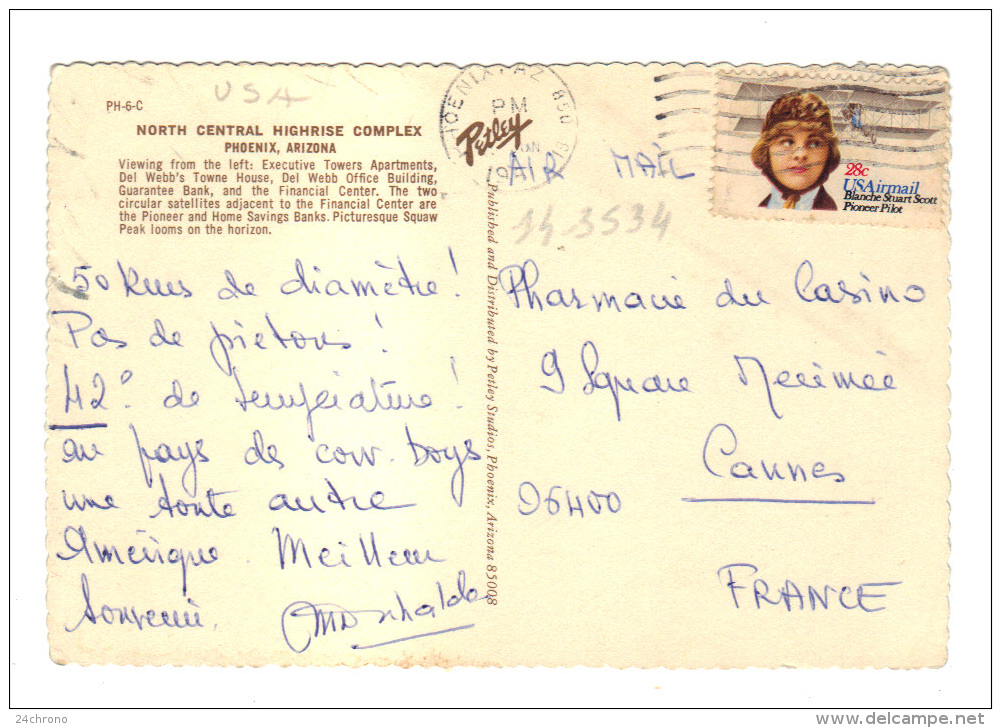 USA
PH-6-C
NORTH CENTRAL HIGHRISE COMPLEX
PHOENIX, ARIZONA
Viewing from the left: Executive Towers Apartments,
Del Webb's Towne House, Del Webb Office Building,
Guarantee Bank, and the Financial Center. The two
circular satellites adjacent to the Financial Center are
the Pioneer and Home Savings Banks. Picturesque Squaw
Peak looms on the horizon.
50 Kms de diamètre !
Pas de piétons !
42° de température !
au pays des cow-boys
une toute autre
Amérique. Meilleur
Souvenir.
Petley
Published and Distributed by Petley Studios, Phoenix, Arizona 85008
PHOENIX, AZ 850
PM
AIR MAIL
28c
USAirmail
Blanche Stuart Scott
Pioneer Pilot
14.3534
Pharmacie du Casino
9 Square Merimée
Cannes
06400
FRANCE
24chrono
www.delcampe.net